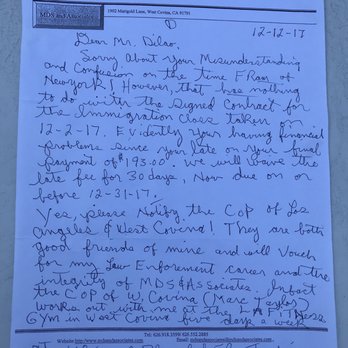 MDS and Associates
1902 Marigold Lane, West Covina, CA 91791
①
12-12-17
Dear Mr. Delao,
Sorry, about your Misunderstanding
and Confusion on the time Frame of
New york! However, that has nothing
to do with the signed Contract for
the Immigration Class taken on
12-2-17. Evidently your having financial
problems since your late on your final
payment of $193.00. We will wave the
late fee for 30 days, Now due on or
before 12-31-17.
Yes, please Notify, the COP of Los
Angeles & West Covina! They are both
good friends of mine and will Vouch
for my Law Enforcement career and the
integrity of MDS & Associates. Infact
the COP of W. Covina (Marc Taylor)
works out with me at the LA Fitness
Gym in West Covina five days a week
Tel: 626.918.3599/ 626.552.2885
Website: http://www.mdsandassociates.com Email: